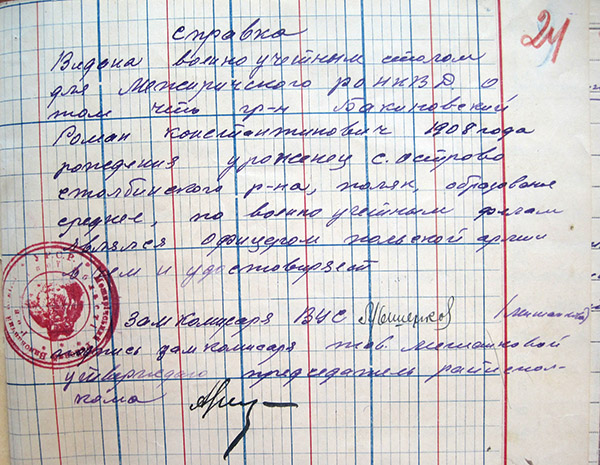 справка
24
Видана военно учетным столом
для Межиричского ро НКВД о
том что гр-н Бакиновский
Роман Константинович 1908 года
рождения уроженец с. Острово
столбинского р-на, поляк, образование
среднее, по военно учетным
являлся офицером польской армии
в чем и удостовиряет
Зам комисаря ВУС
дам комисаря тов.
утверждаю председатель райиспол-
кома